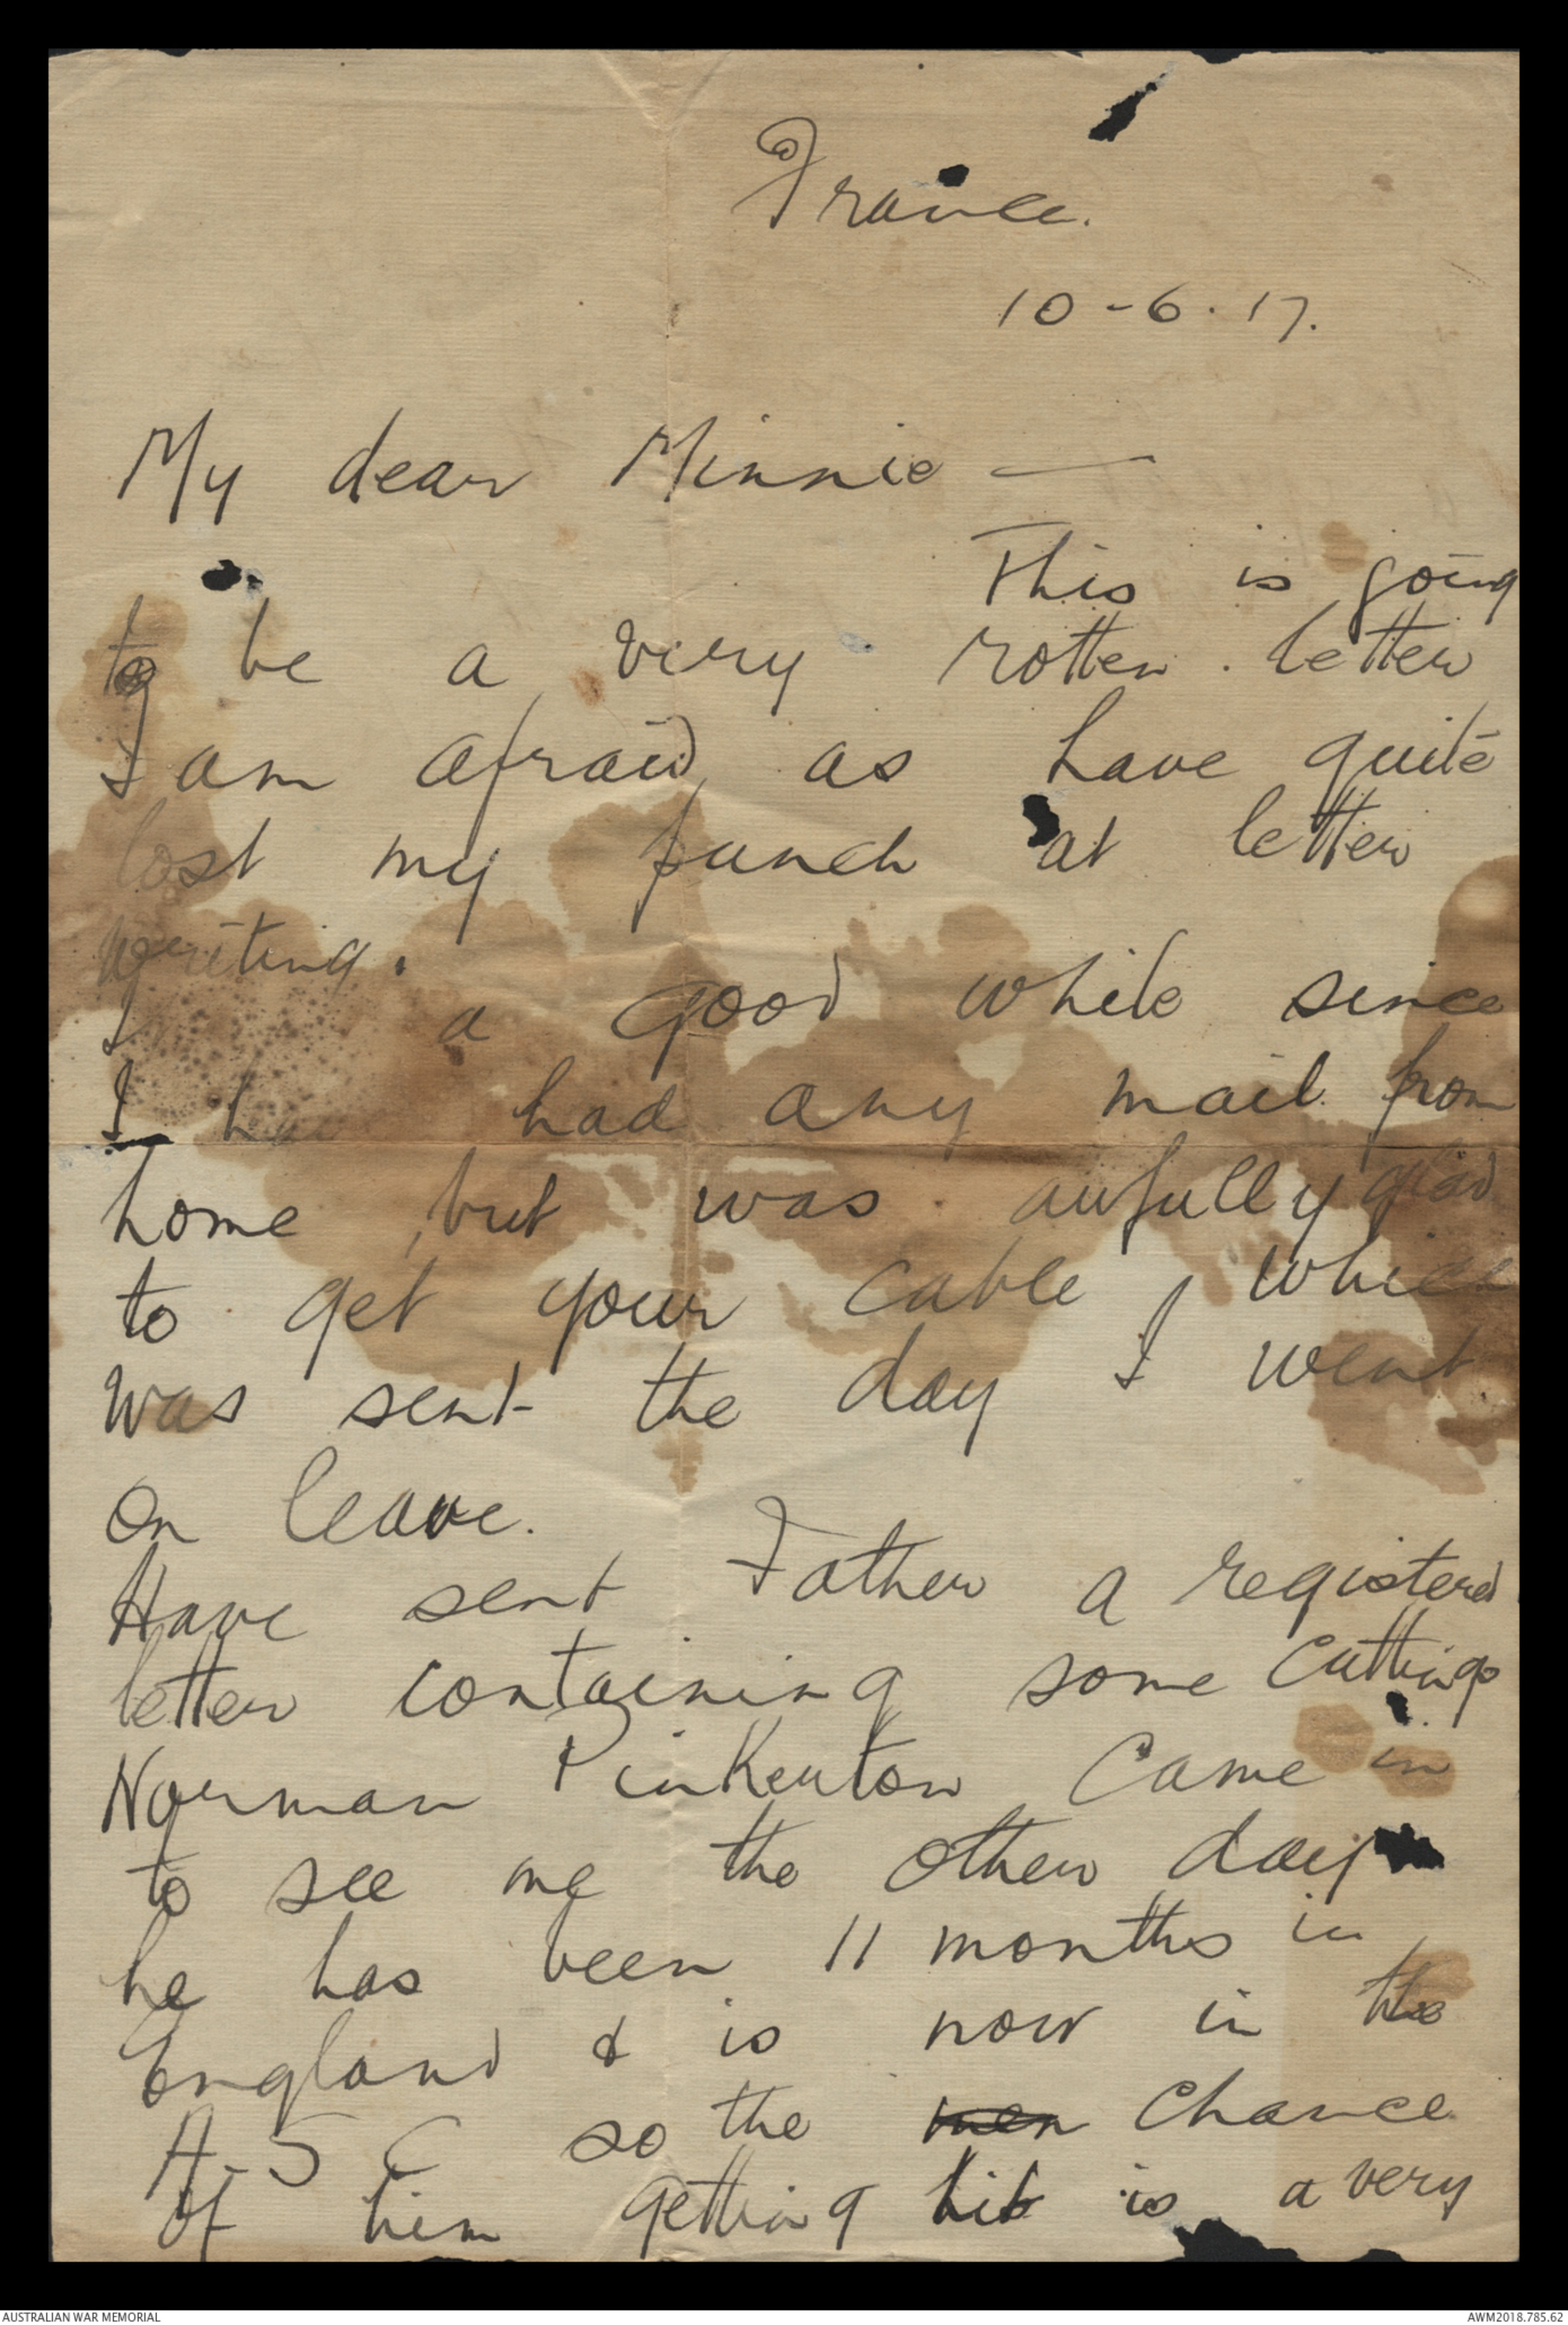 France.
10-6.17.
My dear Minnie —
This is going
to be a very rotten letter
I am afraid as have quite
lost my punch at letter
writing.
I a good while since
I have had any mail from
home, but was awfully glad
to get your cable, which
was sent the day I went
on leave.
Have sent Father a registered
letter containing some cuttings
Norman Pinkerton came in
to see me the other day
he has been 11 months in
England & is now in the
A.S.C so the men chance
of him getting hit is a very
AUSTRALIAN WAR MEMORIAL
AWM2018.785.62